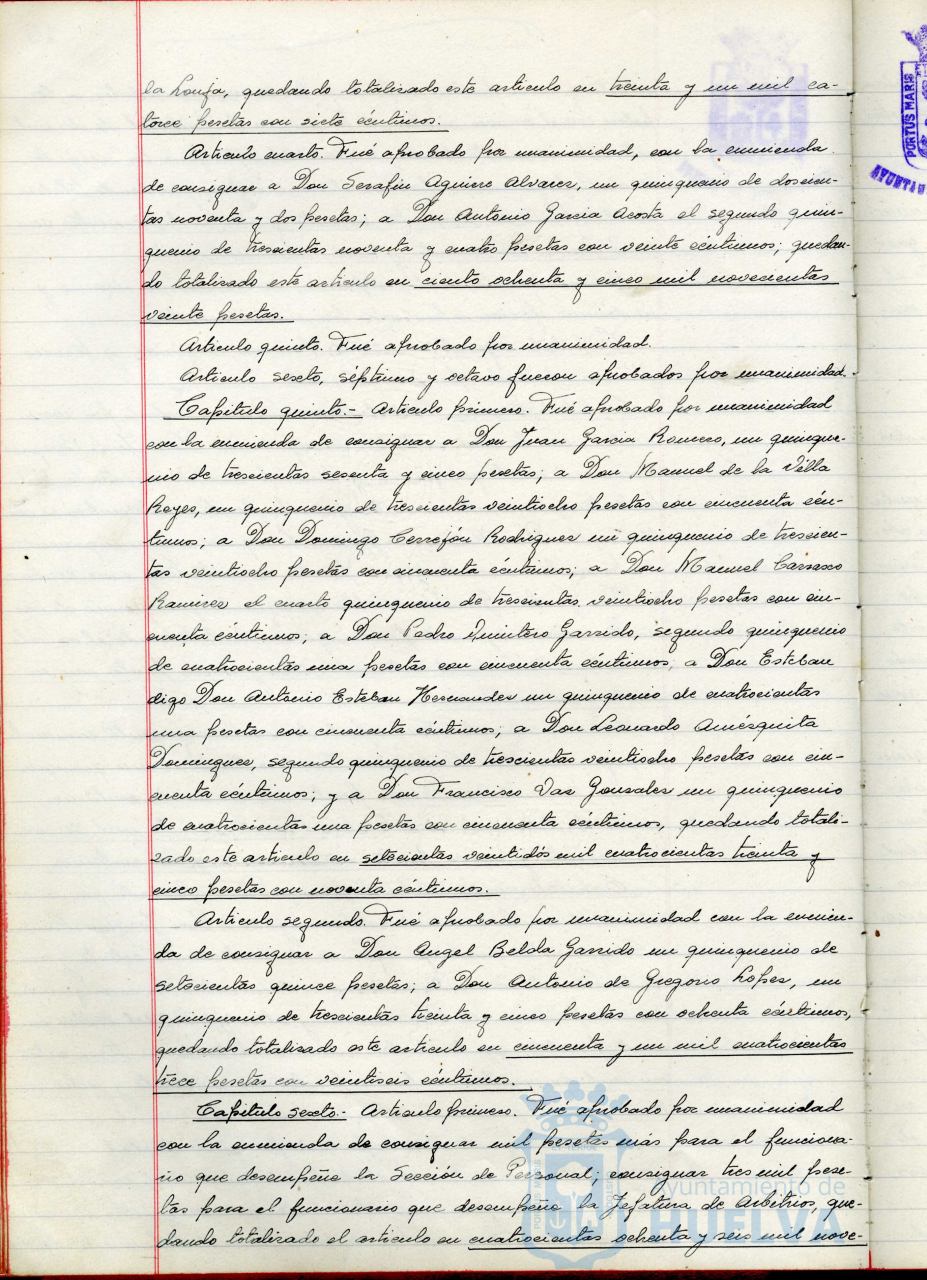 la Lonja, quedando totalizado este articulo en treinta y un mil ca-
torce pesetas con siete céntimos.
Articulo cuarto. Fué aprobado por unanimidad, con la enmienda
de consignar a Don Serafin Aguirre Alvarez, un quinquenio de doscien-
tas noventa y dos pesetas; a Don Antonio Garcia Acosta el segundo quin-
quenio de trescientas noventa y cuatro pesetas con veinte céntimos; quedan-
do totalizado este articulo en ciento ochenta y cinco mil novecientas
veinte pesetas.
Articulo quinto. Fué aprobado por unanimidad.
Articulo sexto, séptimo y octavo fueron aprobados por unanimidad.
Capitulo quinto.- Articulo primero. Fué aprobado por unanimidad
con la enmienda de consignar a Don Juan Garcia Romero, un quinque-
nio de trescientas sesenta y cinco pesetas; a Don Manuel de la Villa
Reyes, un quinquenio de trescientas veintiocho pesetas con cincuenta cén-
timos; a Don Domingo Cerrejón Rodriguez un quinquenio de trescien-
tas veintiocho pesetas con cincuenta céntimos; a Don Manuel Carrasco
Ramirez el cuarto quinquenio de trescientas veintiocho pesetas con cin-
cuenta céntimos; a Don Pedro Quintero Garrido, segundo quinquenio
de cuatrocientas una pesetas con cincuenta céntimos; a Don Esteban
digo Don Antonio Esteban Hernandez un quinquenio de cuatrocientas
una pesetas con cincuenta céntimos; a Don Leonardo Amézquita
Dominguez, segundo quinquenio de trescientas veintiocho pesetas con cin-
cuenta céntimos; y a Don Francisco Vaz Gonzalez un quinquenio
de cuatrocientas una pesetas con cincuenta céntimos, quedando totali-
zado este articulo en setecientas veintidós mil cuatrocientas treinta y
cinco pesetas con noventa céntimos.
Articulo segundo. Fué aprobado por unanimidad con la enmien-
da de consignar a Don Angel Belda Garrido un quinquenio de
setecientas quince pesetas; a Don Antonio de Gregorio Lopez, un
quinquenio de trescientas treinta y cinco pesetas con ochenta céntimos,
quedando totalizado este articulo en cincuenta y un mil cuatrocientas
trece pesetas con veintiseis céntimos.
Capitulo sexto.- Articulo primero. Fué aprobado por unanimidad
con la enmienda de consignar mil pesetas más para el funciona-
rio que desempeñe la Sección de Personal; consignar tres mil pese-
tas para el funcionario que desempeñe la Jefatura de Arbitrios, que-
dando totalizado el articulo en cuatrocientas ochenta y seis mil nove-
PORTUS MARIS
AYUNTAM
Ayuntamiento de
HUELVA